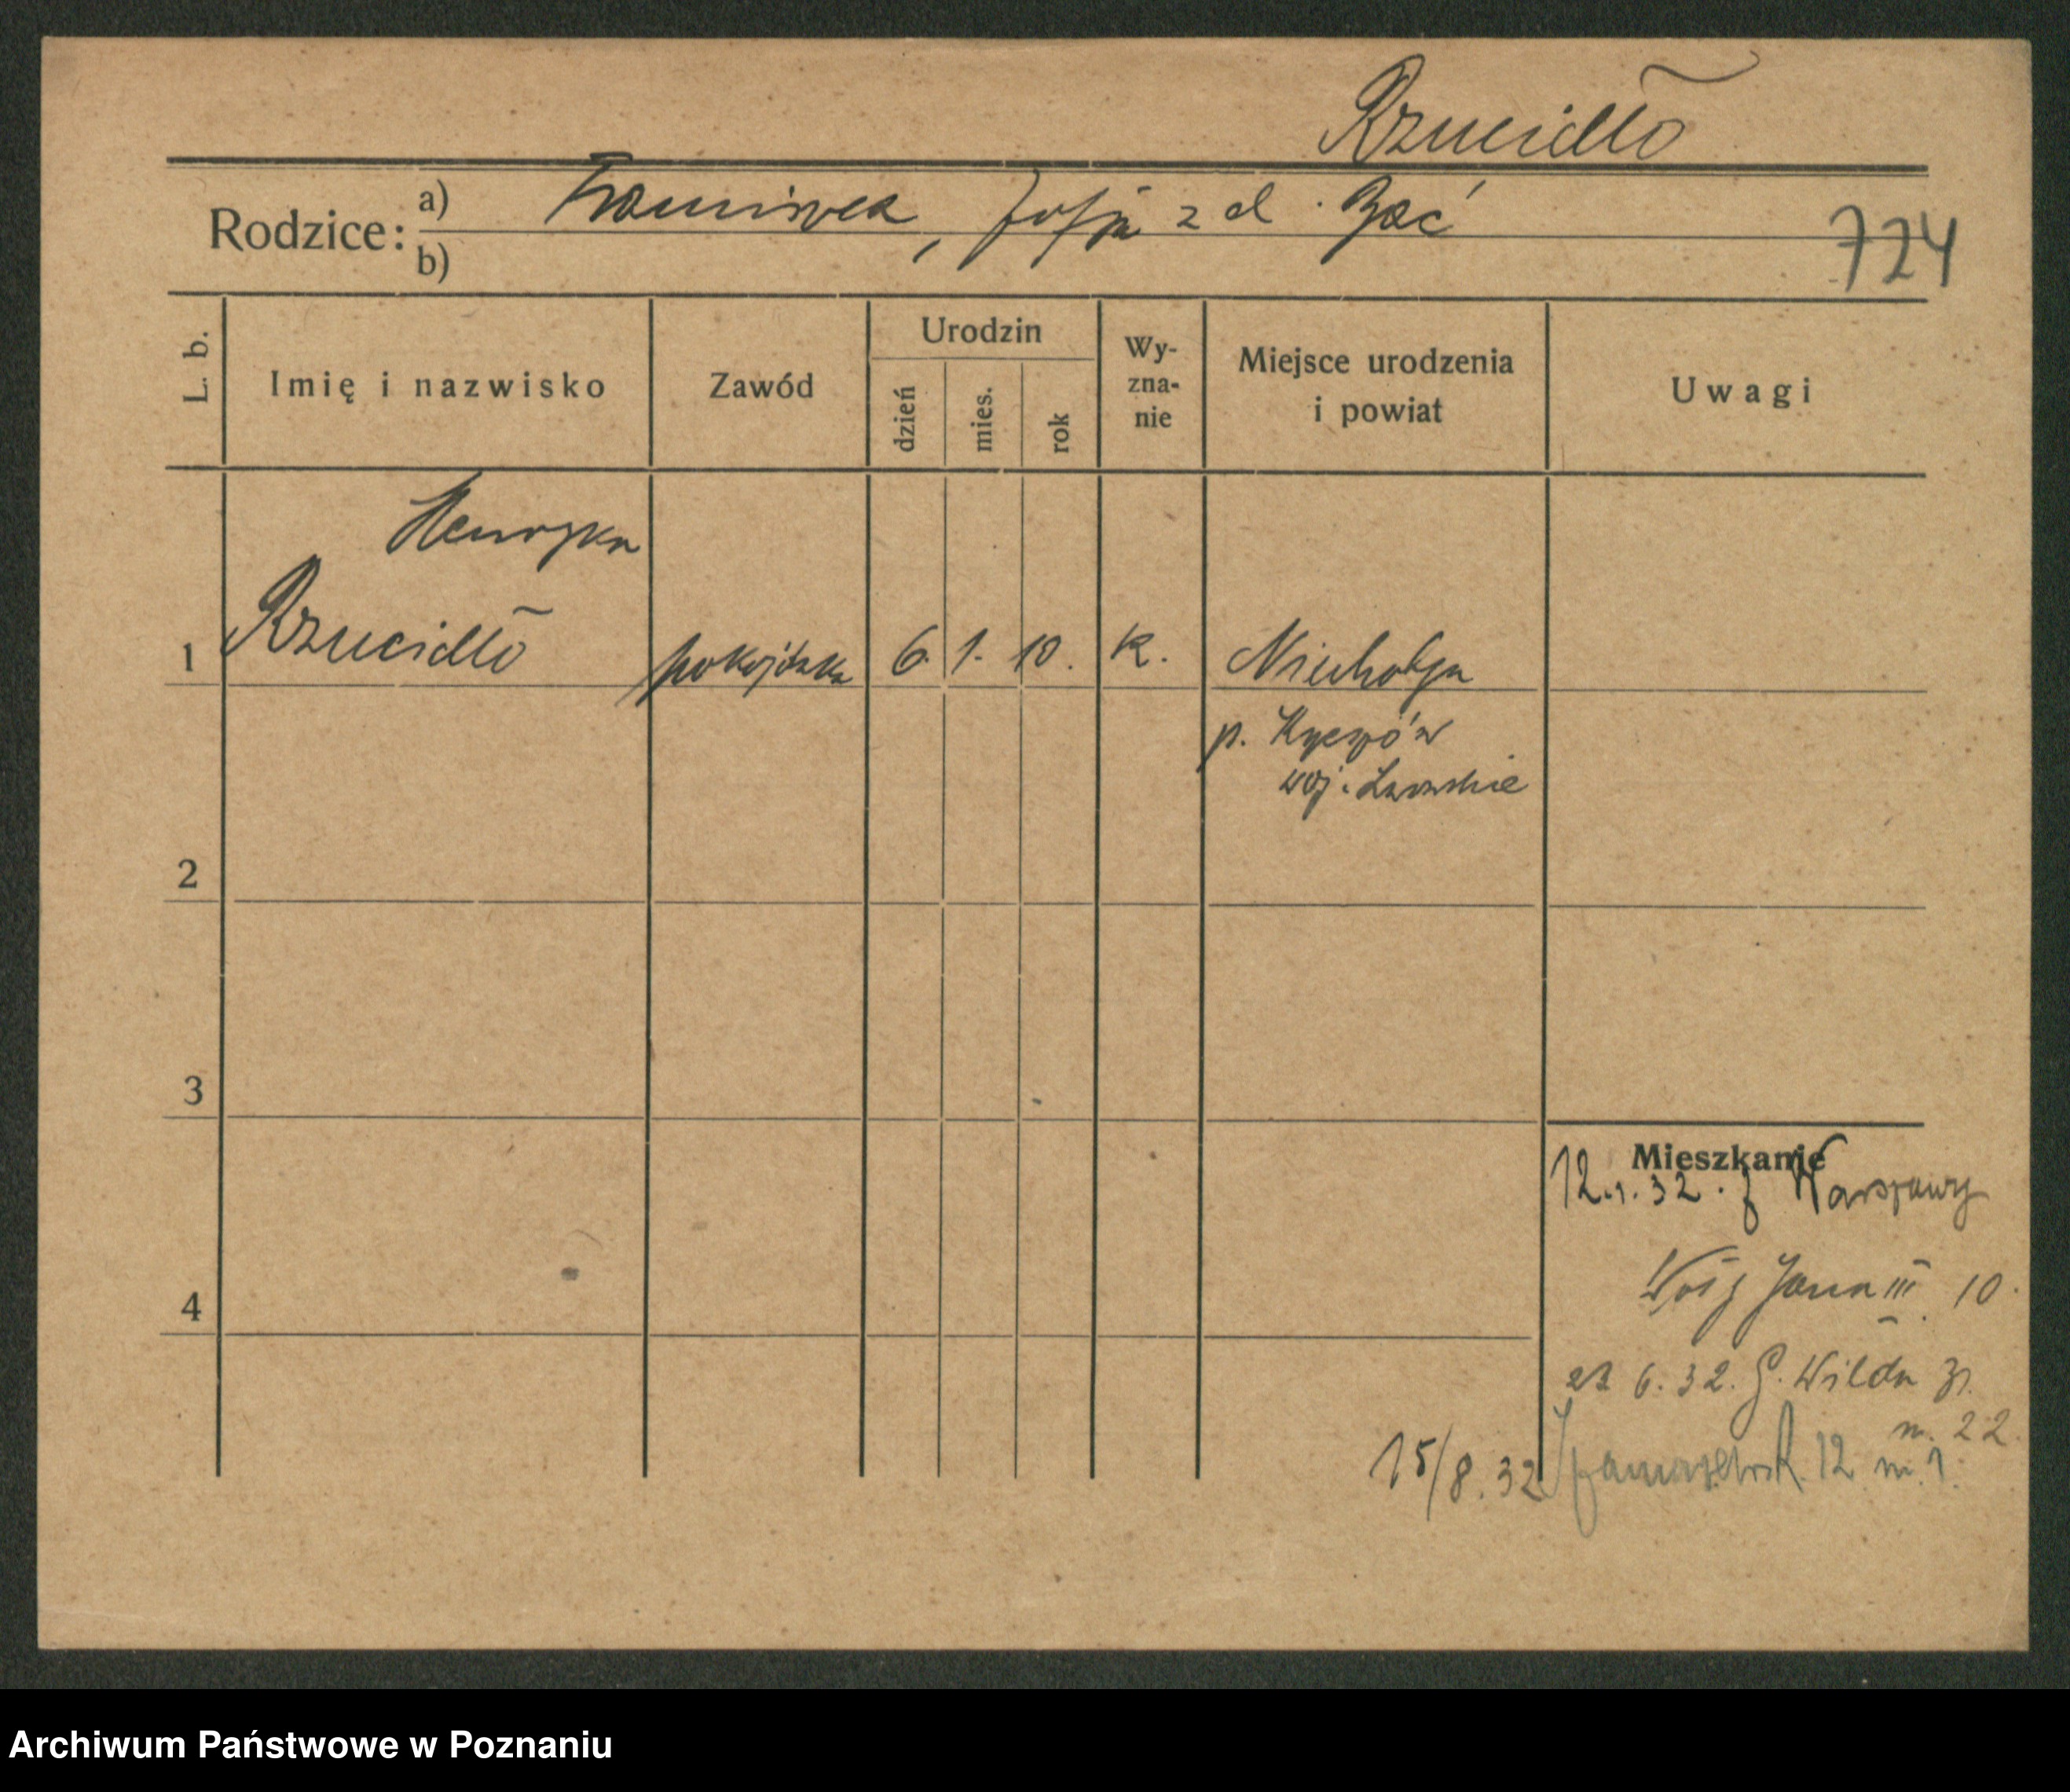 Rzucidło
Rodzice: a) Franciszek, Zofja z d. Bać
b)
724
L. b.
Imię i nazwisko
Zawód
Urodzin
dzień
mies.
rok
Wy-
zna-
nie
Miejsce urodzenia
i powiat
Uwagi
Henryka
1 Rzucidło pokojówka 6. 1. 10. k. Niechobrz
p. Rzeszów
woj. Lwowskie
2
3
4
Mieszkanie
12.1.32. z Warszawy
Jana III 10.
6.32. G. Wilda
m. 22
15/8.32 12 m. 1.
Archiwum Państwowe w Poznaniu